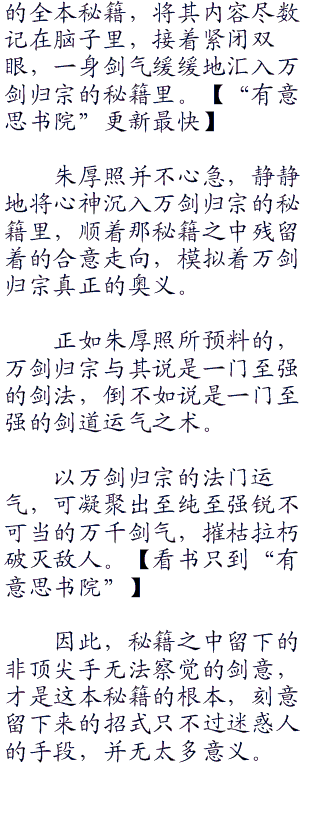 的全本秘籍，将其内容尽数
记在脑子里，接着紧闭双
眼，一身剑气缓缓地汇入万
剑归宗的秘籍里。【“有意
思书院”更新最快】
朱厚照并不心急，静静
地将心神沉入万剑归宗的秘
籍里，顺着那秘籍之中残留
着的合意走向，模拟着万剑
归宗真正的奥义。
正如朱厚照所预料的，
万剑归宗与其说是一门至强
的剑法，倒不如说是一门至
强的剑道运气之术。
以万剑归宗的法门运
气，可凝聚出至纯至强锐不
可当的万千剑气，摧枯拉朽
破灭敌人。【看书只到“有
意思书院”】
因此，秘籍之中留下的
非顶尖手无法察觉的剑意，
才是这本秘籍的根本，刻意
留下来的招式只不过迷惑人
的手段，并无太多意义。